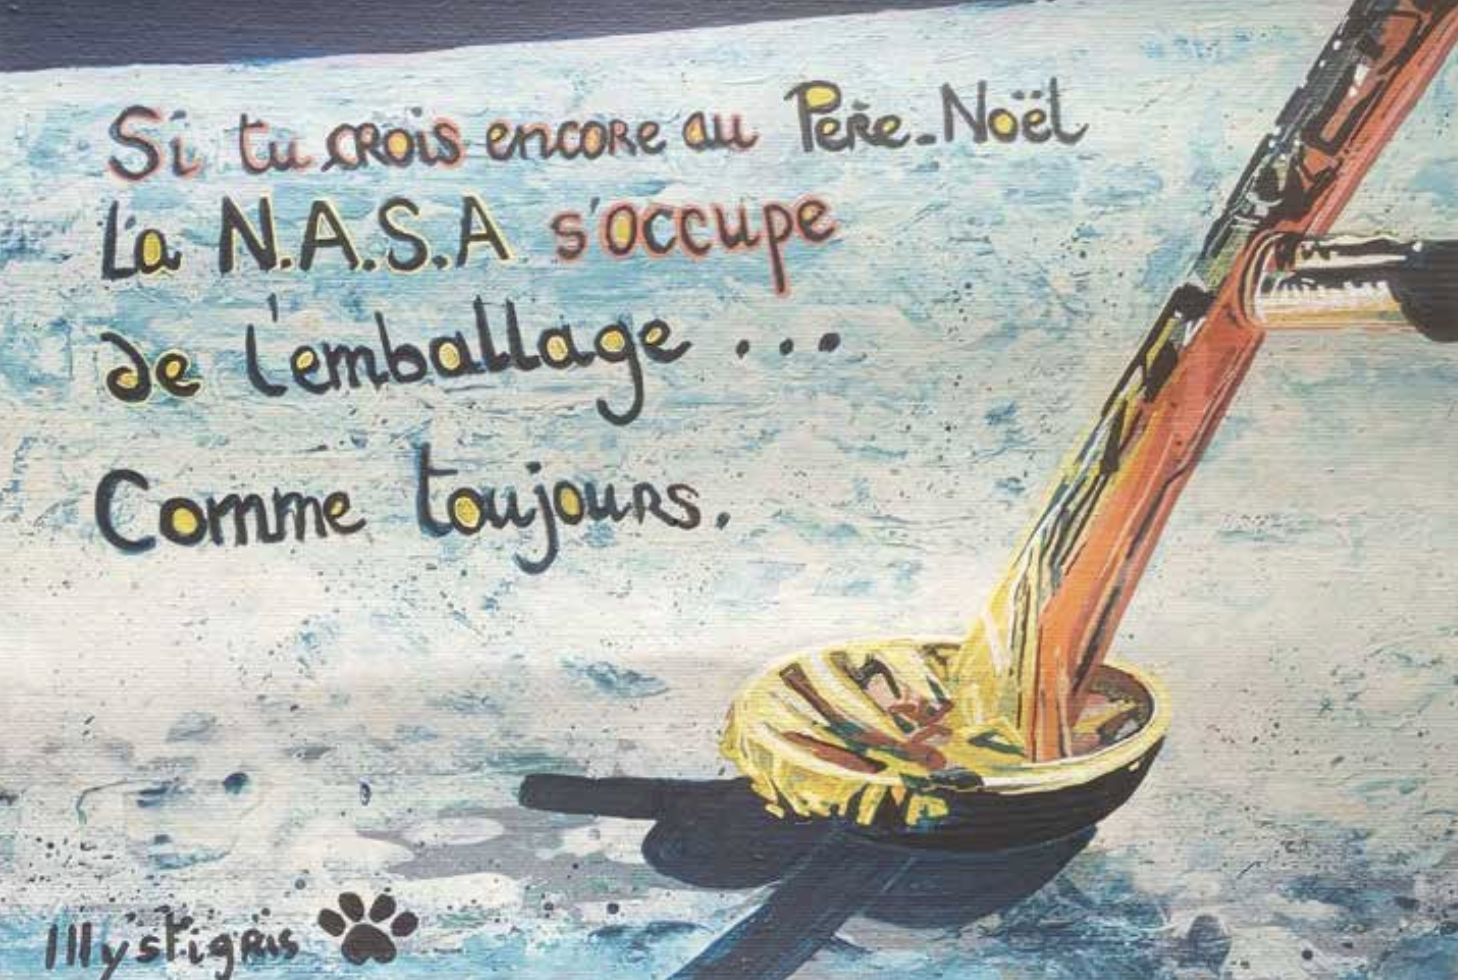 Si tu crois encore au Père-Noël
La N.A.S.A s'occupe
de l'emballage ...
Comme toujours.
Illystigris